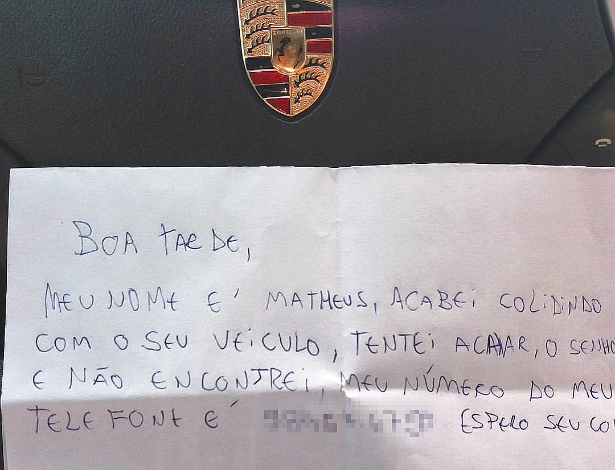 BOA TARDE,
MEU NOME E' MATHEUS, ACABEI COLIDINDO
COM O SEU VEICULO, TENTEI ACHAR, O SENHO
E NÃO ENCONTREI, MEU NÚMERO DO MEU
TELEFONE E' ESPERO SEU CO